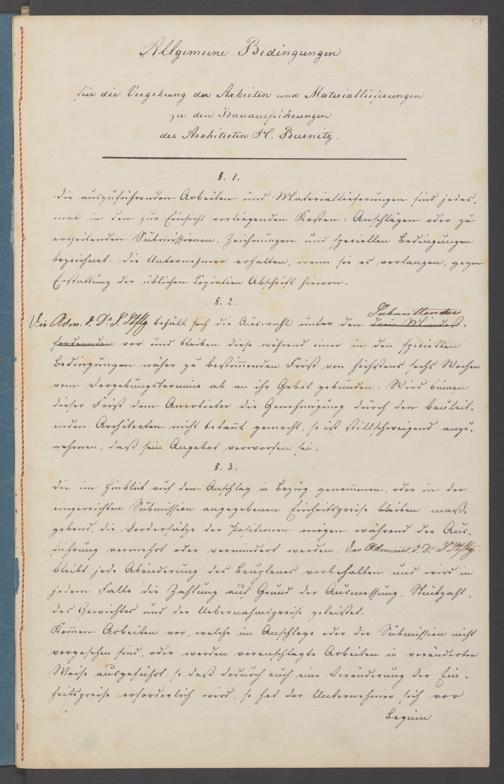 51
Allgemeine Bedingungen
für die Vergebung der Arbeiten und Materiallieferungen
zu den Bauausführungen
des Architecten H. Burnitz.
§. 1.
Die auszuführenden Arbeiten und Materiallieferungen sind jedes-
mal in den zur Einsicht vorliegenden Kosten-Anschlägen oder zu
ertheilenden Submissionen, Zeichnungen und speciellen Bedingungen
bezeichnet. Die Unternehmer erhalten, wenn sie es verlangen, gegen
Erstattung der üblichen Copialien Abschrift hiervon.
§. 2.
Submittenden
Die Adm. d. Dr. S. Stftg behält sich die Auswahl unter den drei Mindest-
fordernden vor und bleiben diese während einer in den speciellen
Bedingungen näher zu bestimmenden Frist von höchstens sechs Wochen
vom Vergebungstermine ab an ihr Gebot gebunden. Wird binnen
dieser Frist dem Anerbieter die Genehmigung durch den bauleit-
enden Architecten nicht bekannt gemacht, so ist stillschweigend anzu-
nehmen, daß sein Angebot verworfen sei.
§. 3.
Die im Hinblick auf den Anschlag in Bezug genommenen, oder in der
eingereichten Submission angegebenen Einheitspreise bleiben maß-
gebend, die Vordersätze der Positionen mögen während der Aus-
führung vermehrt oder vermindert werden. Der Administ. d. Dr. S. Stftg.
bleibt jede Abänderung des Bauplanes vorbehalten und wird in
jedem Falle die Zahlung auf Grund der Ausmessung, Stückzahl,
des Gewichtes und der Uebernahmspreise geleistet.
Kommen Arbeiten vor, welche im Anschlage oder der Submission nicht
vorgesehen sind, oder werden veranschlagte Arbeiten in veränderter
Weise ausgeführt, so daß dadurch auch eine Veränderung der Ein-
heitspreise erforderlich wird, so hat der Unternehmer sich vor
Beginn